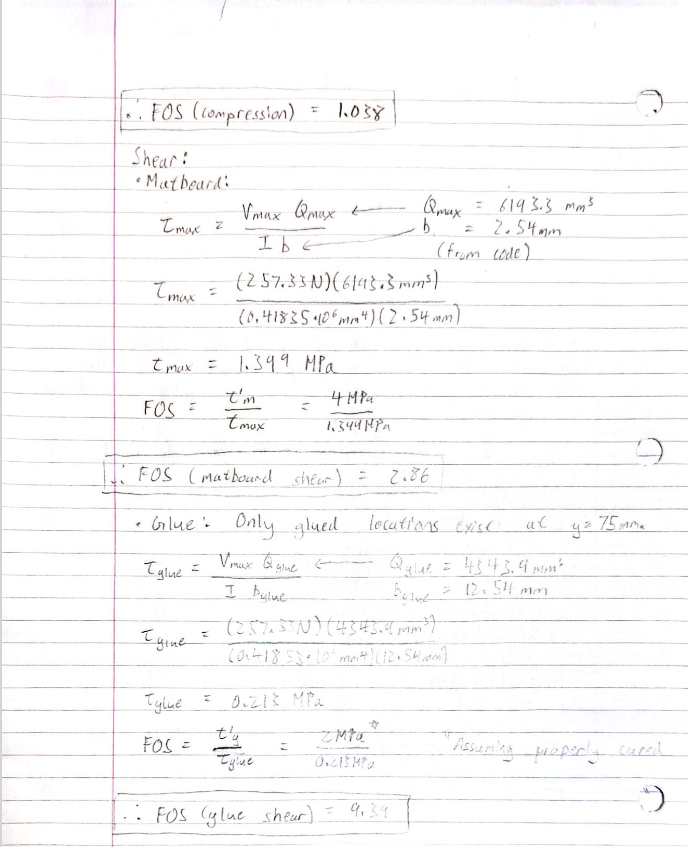 ∴ FOS (compression) = 1.038
Shear:
• Matboard:
τmax = Vmax Qmax / I b ← Qmax = 6193.3 mm³
b = 2.54 mm
(from code)
τmax = (257.33N)(6193.3 mm³) / (0.41835•10⁶ mm⁴)(2.54 mm)
τmax = 1.499 MPa
FOS = τ'm / τmax = 4 MPa / 1.399 MPa
∴ FOS (matboard shear) = 2.86
• Glue: Only glued locations exist at y = 75 mm
τglue = Vmax Qglue / I bglue ← Qglue = 4343.9 mm³
bglue = 12.54 mm
τglue = (257.33N)(4343.9 mm³) / (0.41853•10⁶ mm⁴)(12.54 mm)
τglue = 0.213 MPa
FOS = τ'g / τglue = 2 MPa* / 0.213 MPa *Assuming properly cured
∴ FOS (glue shear) = 9.39